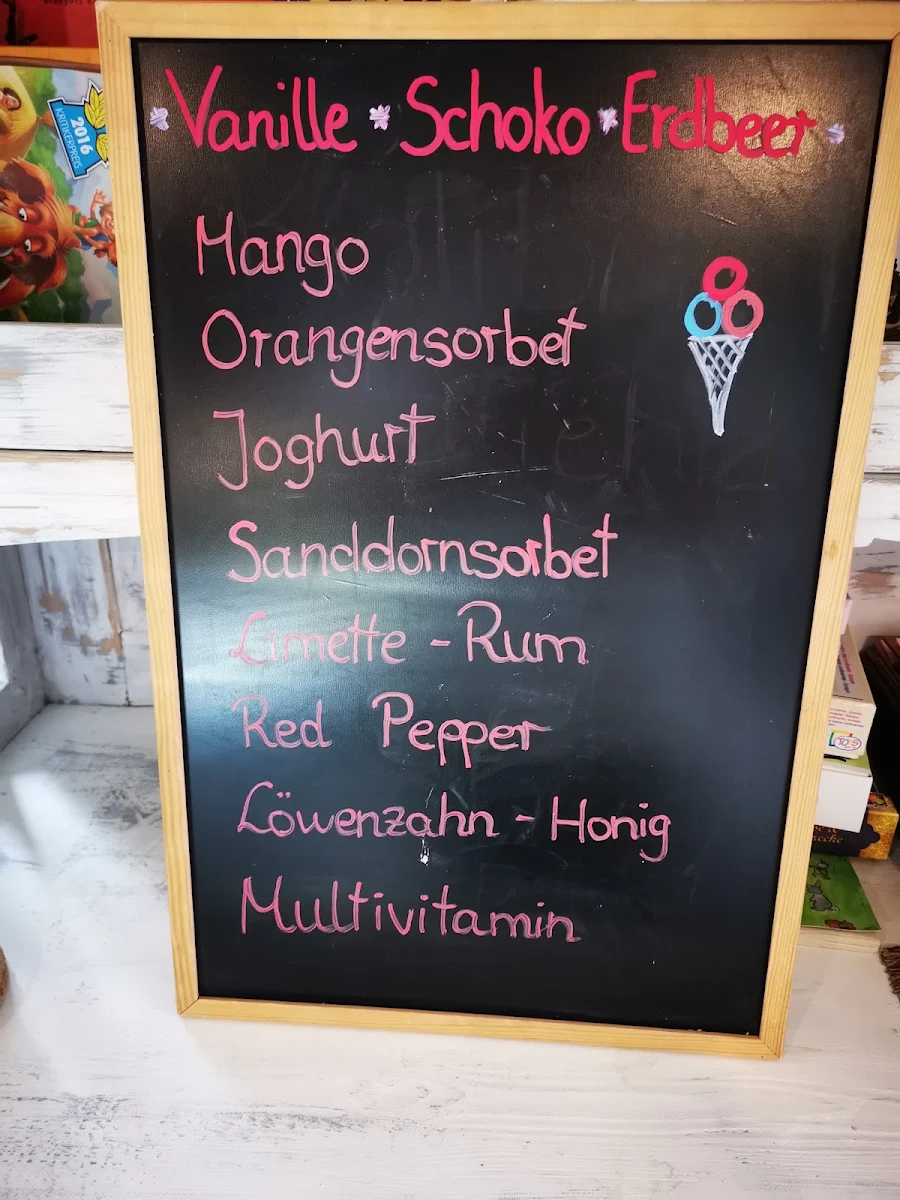 Vanille * Schoko * Erdbeer
Mango
Orangensorbet
Joghurt
Sanddornsorbet
Limette - Rum
Red Pepper
Löwenzahn - Honig
Multivitamin
2016
KRITIKERPREIS